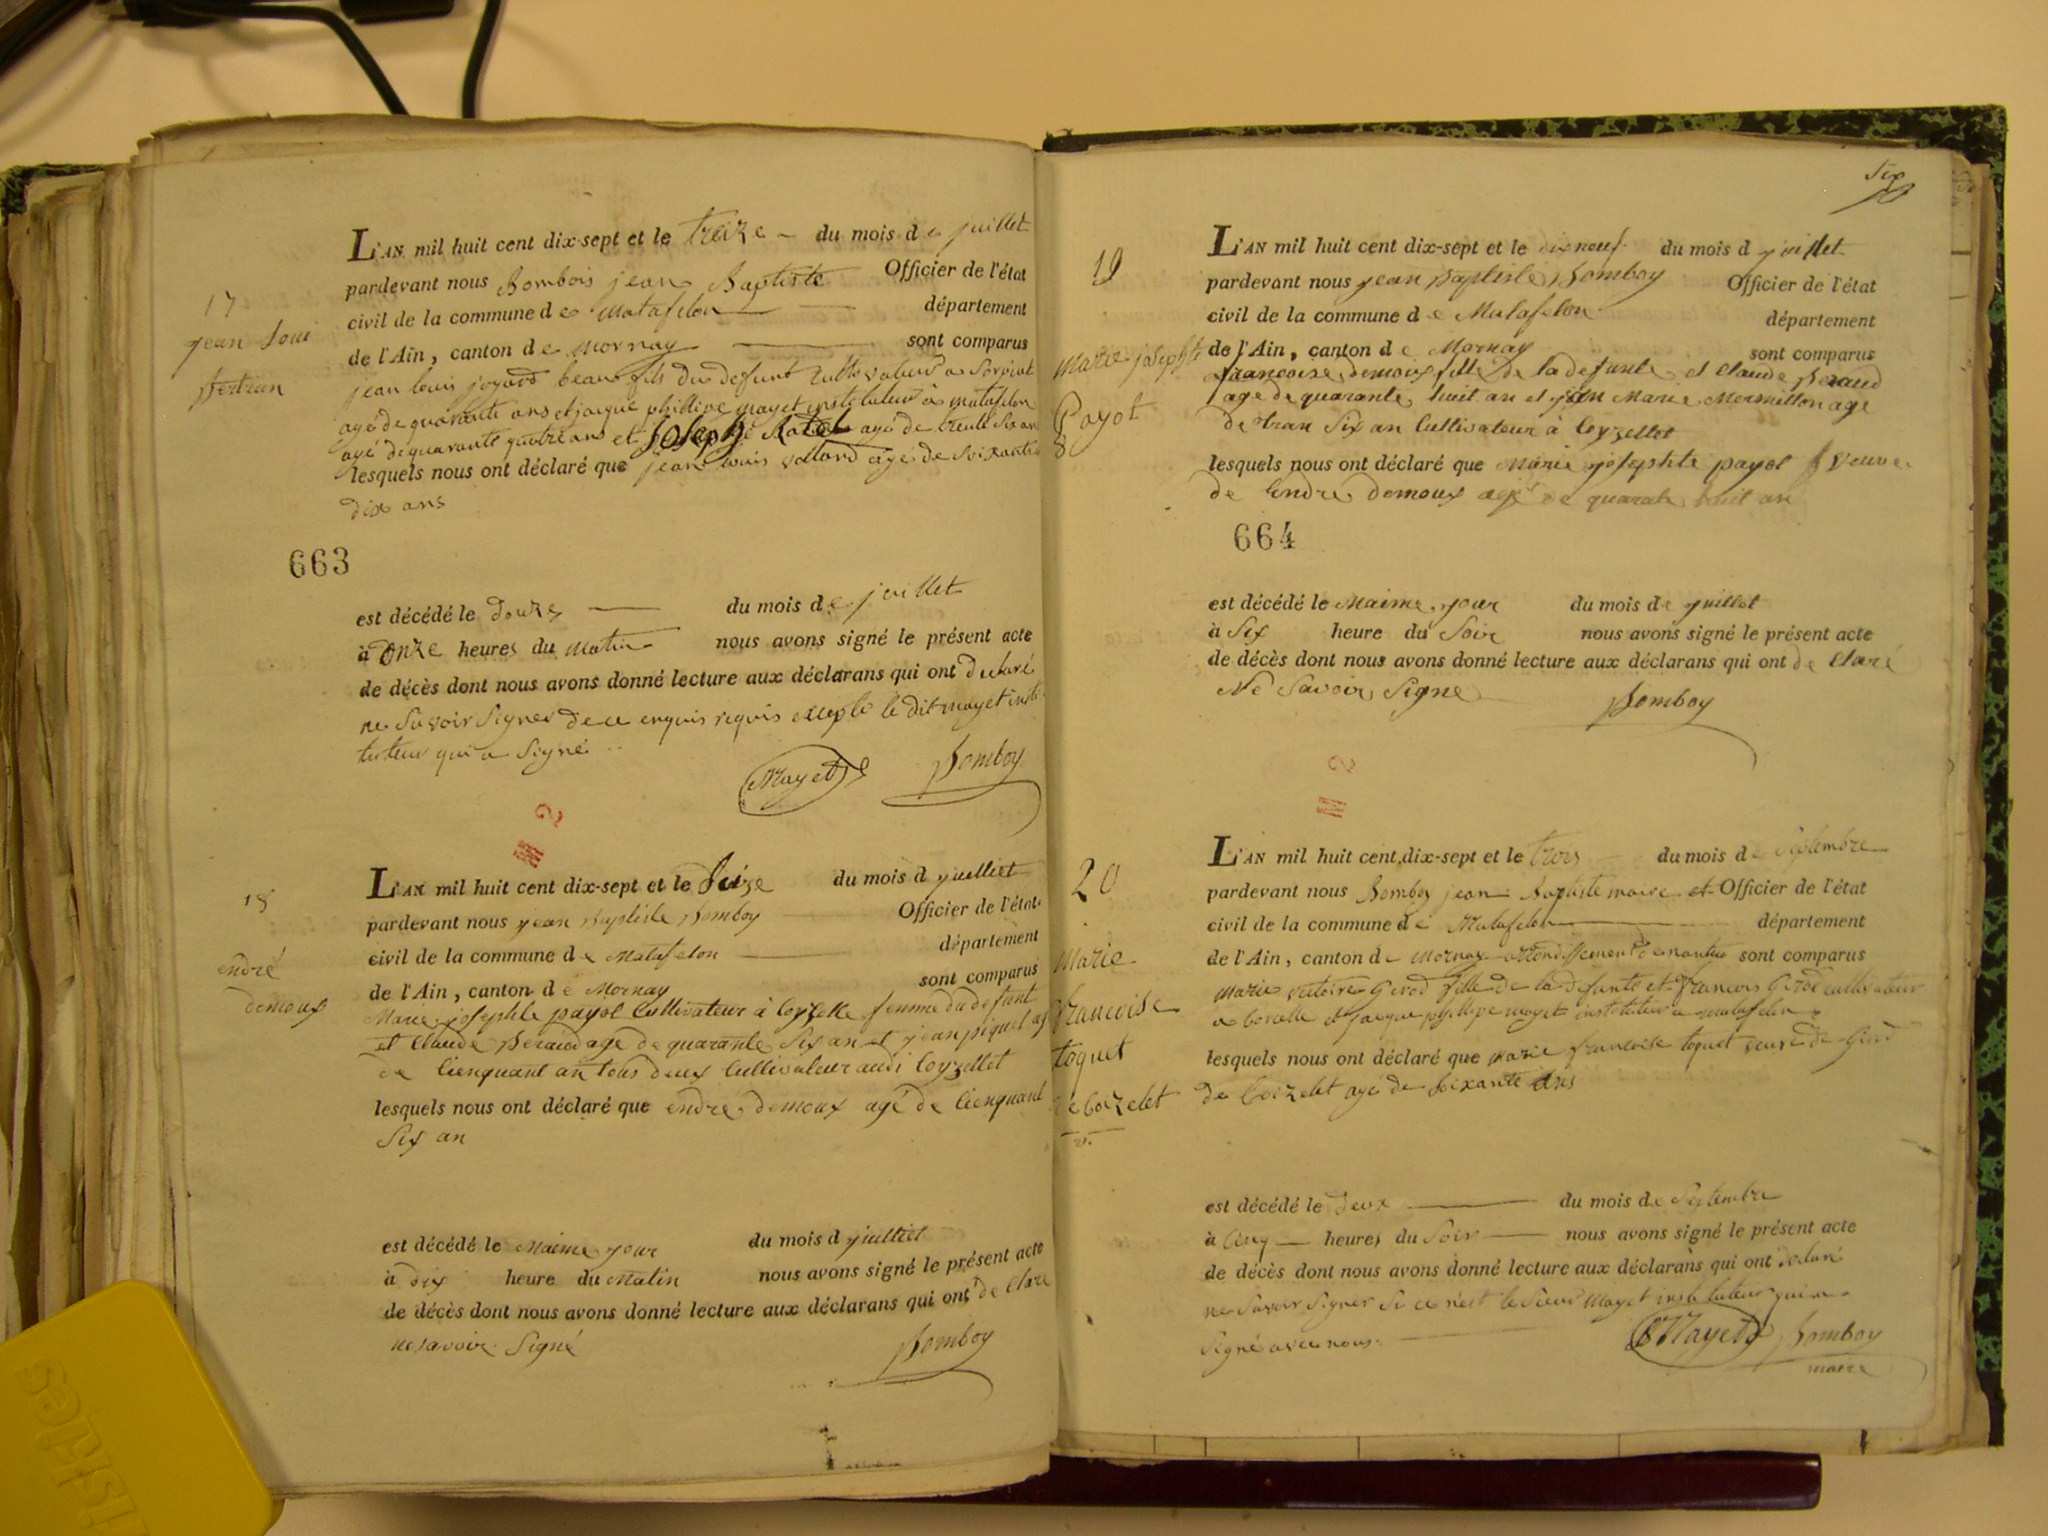 17
jean Loui
Bertran
L'AN mil huit cent dix-sept et le treize du mois de juillet
pardevant nous Bombois jean Baptiste Officier de l'état
civil de la commune de Matafelon département
de l'Ain, canton de Mornay sont comparus
jean louis joyard beau fils du defunt a
agé de quarante ans et jacque phillipe mayet instituteur à matafelon
agé de quarante quatre ans et Joseph agé de trente six an
lesquels nous ont déclaré que jean louis agé de soixante
dix ans
663
est décédé le douze du mois de juillet
à Onze heures du matin nous avons signé le présent acte
de décès dont nous avons donné lecture aux déclarans qui ont declaré
ne savoir signer de ce enquis requis excepté le dit mayet insti
tuteur qui a signé
Mayet Bomboy
18
endré
demoux
L'AN mil huit cent dix-sept et le Seize du mois d juilliet
pardevant nous jean Baptiste Bomboy Officier de l'état
civil de la commune de Matafelon département
de l'Ain, canton de Mornay sont comparus
Marie josephte payot Cultivateur à Coyzelle femme du defunt
et Claude Beraud age de quarante Six an et jean piquet ag
de Cienquant an tous deux Cultivateur audi Coyzellet
lesquels nous ont déclaré que endré demoux agé de Cienquant
Six an
est décédé le Maime jour du mois d juilliet
à dix heure du Matin nous avons signé le présent acte
de décès dont nous avons donné lecture aux déclarans qui ont de Claré
ne savoir Signé
Bomboy
Six
19
Marie josephte
Payot
L'AN mil huit cent dix-sept et le dix neuf du mois d juillet
pardevant nous jean Baptiste Bomboy Officier de l'état
civil de la commune de Matafelon département
de l'Ain, canton de Mornay sont comparus
francoise demoux fille de la defunte et Claude Beraud
age de quarante huit an et jean Marie Mermillon age
de tran Six an Cultivateur à Coyzellet
lesquels nous ont déclaré que Marie josephte payot veuve
de Endré demoux agé de quarate huit an
664
est décédé le Maime jour du mois de juillet
à Six heure du Soir nous avons signé le présent acte
de décès dont nous avons donné lecture aux déclarans qui ont de Claré
Ne Savoir Signe
Bomboy
20
Marie
francoise
toquet
de Coizelet
L'AN mil huit cent dix-sept et le trois du mois de Septembre
pardevant nous Bomboy jean Baptiste maire et Officier de l'état
civil de la commune de Matafelon département
de l'Ain, canton de Mornay arrondissement de nantua sont comparus
Marie victoire Girod fille de la defunte et francois Girod cultivateur
a et jacque phillipe mayet instituteur a matafelon
lesquels nous ont déclaré que marie francoise toquet veuve de Girod
de Coizelet agé de soixante ans
est décédé le deux du mois de Septembre
à Cinq heures du Soir nous avons signé le présent acte
de décès dont nous avons donné lecture aux déclarans qui ont declaré
ne savoir signer si ce n'est le Sieur Mayet instituteur qui a
signé avec nous
Mayet Bomboy
maire